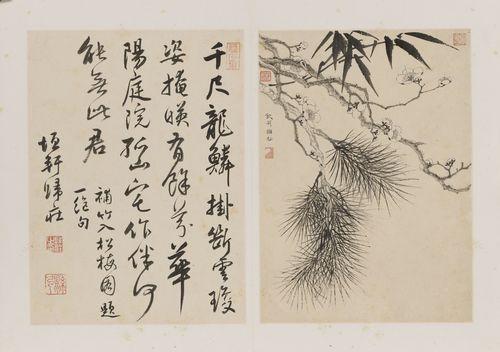 千尺龍鱗掛斷雲瓊
姿掩暎有餘芬華
陽庭院孤山宅作伴何
能無此君
補竹入松梅圖題
一絕句
恒軒歸莊